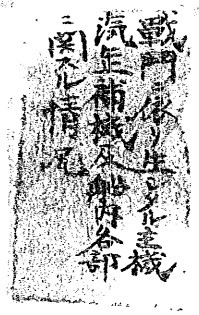 戰鬥ニ依リ生ジタル主機
汽缶補機及艦内各部
ニ関スル情況